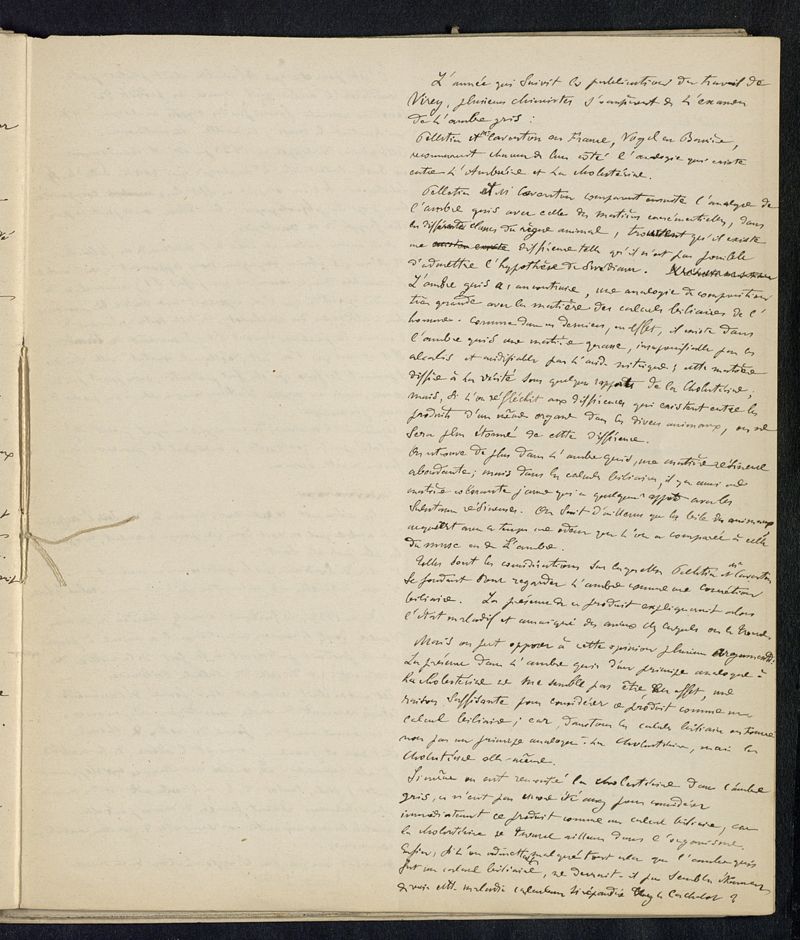 L'année qui suivit la publication du travail de
Virey, plusieurs chimistes s'occupèrent de l'examen
de l'ambre gris :
Pelletier et Caventou en France, Vogel en Bavière,
reconnurent chacun de leur côté l'analogie qui existe
entre l'Ambréine et la cholestérine.
Pelletier et Mr Caventou comparant ensuite l'analyse de
l'ambre gris avec celle des matières excrémentielles, dans
les différentes classes du règne animal, trouvèrent qu'il existe
une différence telle qu'il n'est pas possible
d'admettre l'hypothèse de Swediaur.
L'ambre gris a, au contraire, une analogie de composition
très grande avec la matière des calculs biliaires de l'
homme. Comme dans ces derniers, en effet, il existe dans
l'ambre gris une matière grasse, insaponifiable par les
alcalis et acidifiable par l'acide nitrique ; cette matière
diffère à la vérité sous quelques rapports de la cholestérine ;
mais, si l'on réfléchit aux différences qui existent entre les
produits d'un même organe dans les divers animaux, on ne
sera plus étonné de cette différence.
On trouve de plus dans l'ambre gris, une matière résineuse
abondante ; mais dans les calculs biliaires, il y a aussi une
matière colorante jaune qui a quelques rapports avec les
substances résineuses. On sait d'ailleurs que la bile des animaux
acquiert avec le temps une odeur que l'on a comparée à celle
du musc ou de l'ambre.
Telles sont les considérations sur lesquelles Pelletier et Mr Caventou
se fondent pour regarder l'ambre comme une concrétion
biliaire. La présence de ce produit expliquerait alors
l'état maladif et amaigri des animaux chez lesquels on le trouve.
Mais on peut opposer à cette opinion plusieurs arguments :
La présence dans l'ambre gris d'un principe analogue à
la cholestérine ne me semble pas être, en effet, une
raison suffisante pour considérer ce produit comme un
calcul biliaire ; car, dans tous les calculs biliaires on trouve
non pas un principe analogue à la cholestérine, mais la
cholestérine elle-même.
Si même on eût rencontré la cholestérine dans l'ambre
gris, ce n'eut pas encore été assez pour considérer
immédiatement ce produit comme un calcul biliaire, car
la cholestérine se trouve ailleurs dans l'organisme.
Enfin, si l'on admettait malgré tout cela que l'ambre gris
fût un calcul biliaire, ne devrait-il pas sembler étonnant
de voir cette maladie calculeuse si répandue chez le Cachalot ?